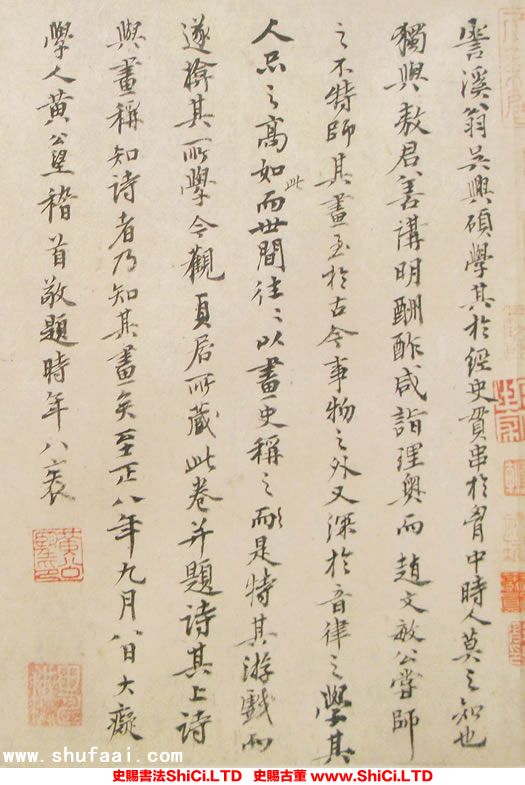 霅溪翁吳興碩學其於經史貫串於胷中時人莫之知也
獨與敖君善講明酬酢咸詣理奧而趙文敏公嘗師
之不特師其畫至於古今事物之外又深於音律之學其
人品之高如此而世間往〻以畫史稱之是特其游戲而
遂揜其所學今觀貞居所藏此卷并題詩其上詩
與畫稱知詩者乃知其畫矣至正八年九月八日大癡
學人黃公望稽首敬題時年八袠
www.shufaai.com
史賜書法ShiCi.LTD 史賜古董 www.ShiCi.LTD